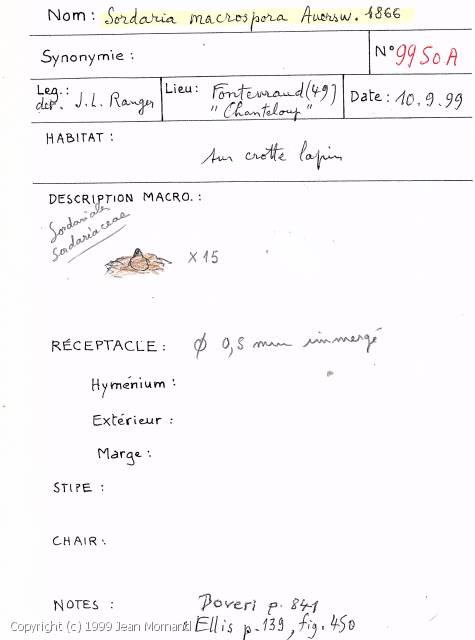 Nom : Sordaria macrospora Auersw. 1866
Synonymie :
N° 9950A
Leg. :
det. J.L. Ranger
Lieu : Fontevraud (49)
"Chanteloup"
Date : 10.9.99
HABITAT :
sur crotte lapin
DESCRIPTION MACRO. :
Sordariales
Sordariaceae
x 15
RÉCEPTACLE : Ø 0,5 mm immergé
Hyménium :
Extérieur :
Marge :
STIPE :
CHAIR :
NOTES : Doveri p. 841
Ellis p. 139, fig. 450
Copyright (c) 1999 Jean Mornand